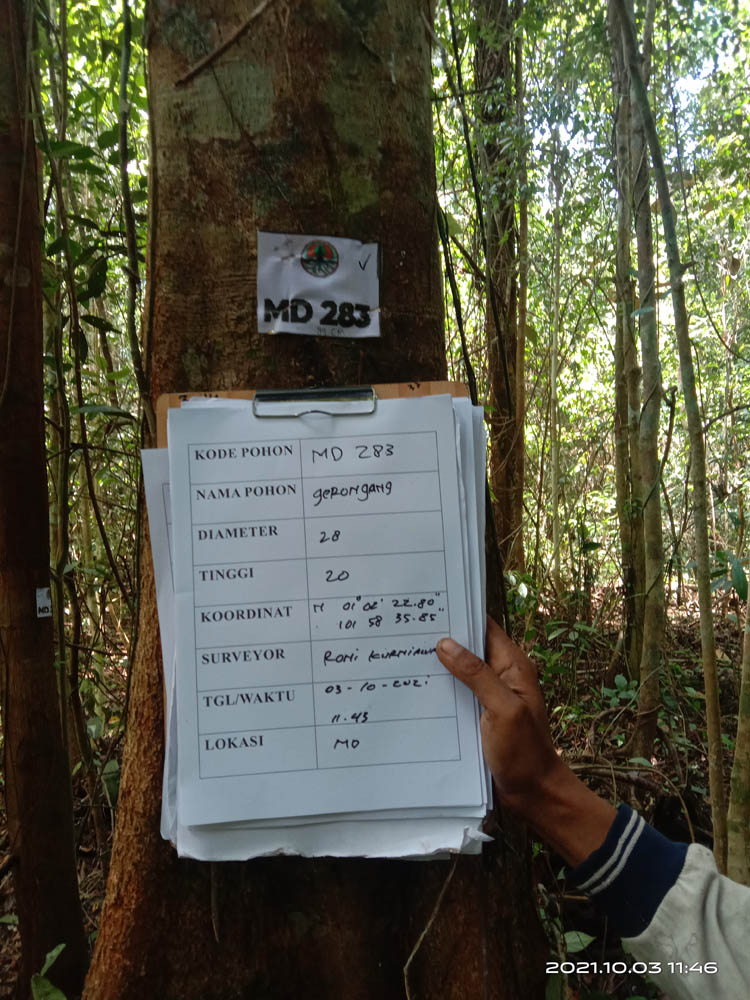 MD 283
KODE POHON MD 283
NAMA POHON gerongang
DIAMETER 28
TINGGI 20
KOORDINAT N 01° 02' 22.80"
101 58 35.85"
SURVEYOR Romi
TGL/WAKTU 03-10-2021
11.43
LOKASI MD
2021.10.03 11:46